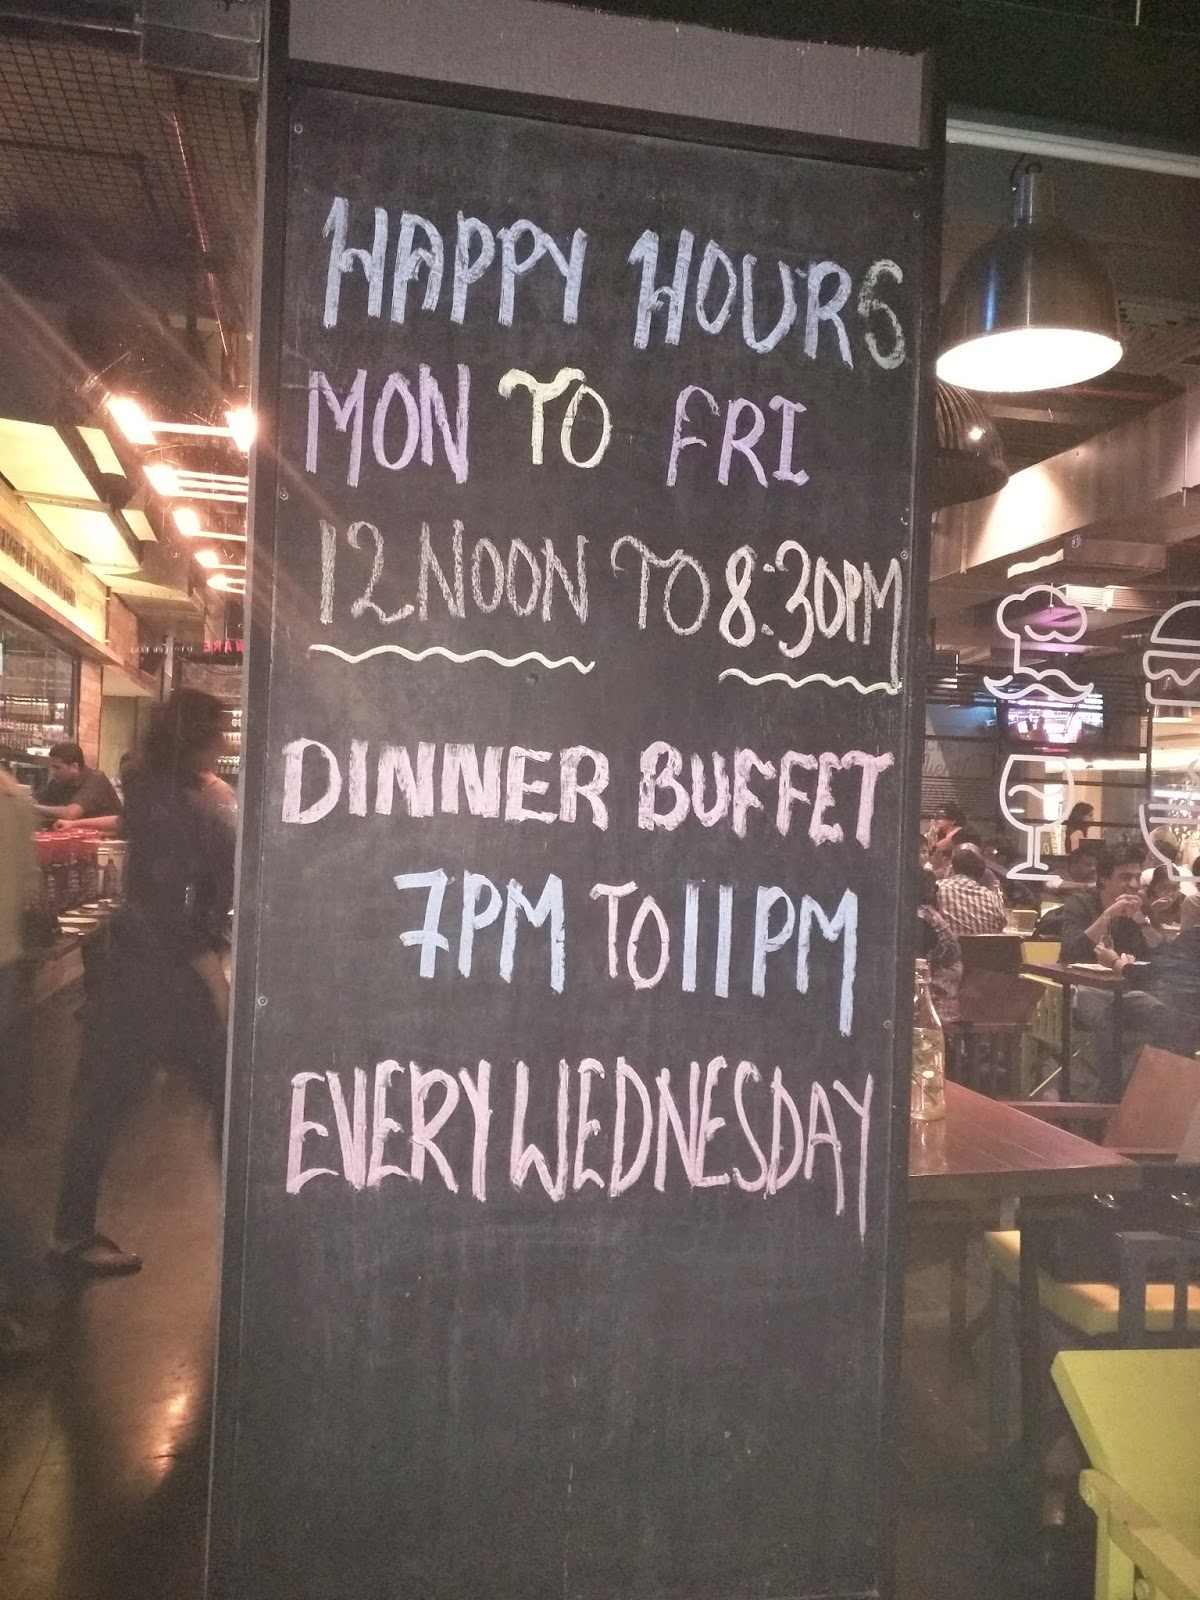 HAPPY HOURS
MON TO FRI
12 NOON TO 8:30PM
DINNER BUFFET
7PM TO 11PM
EVERY WEDNESDAY